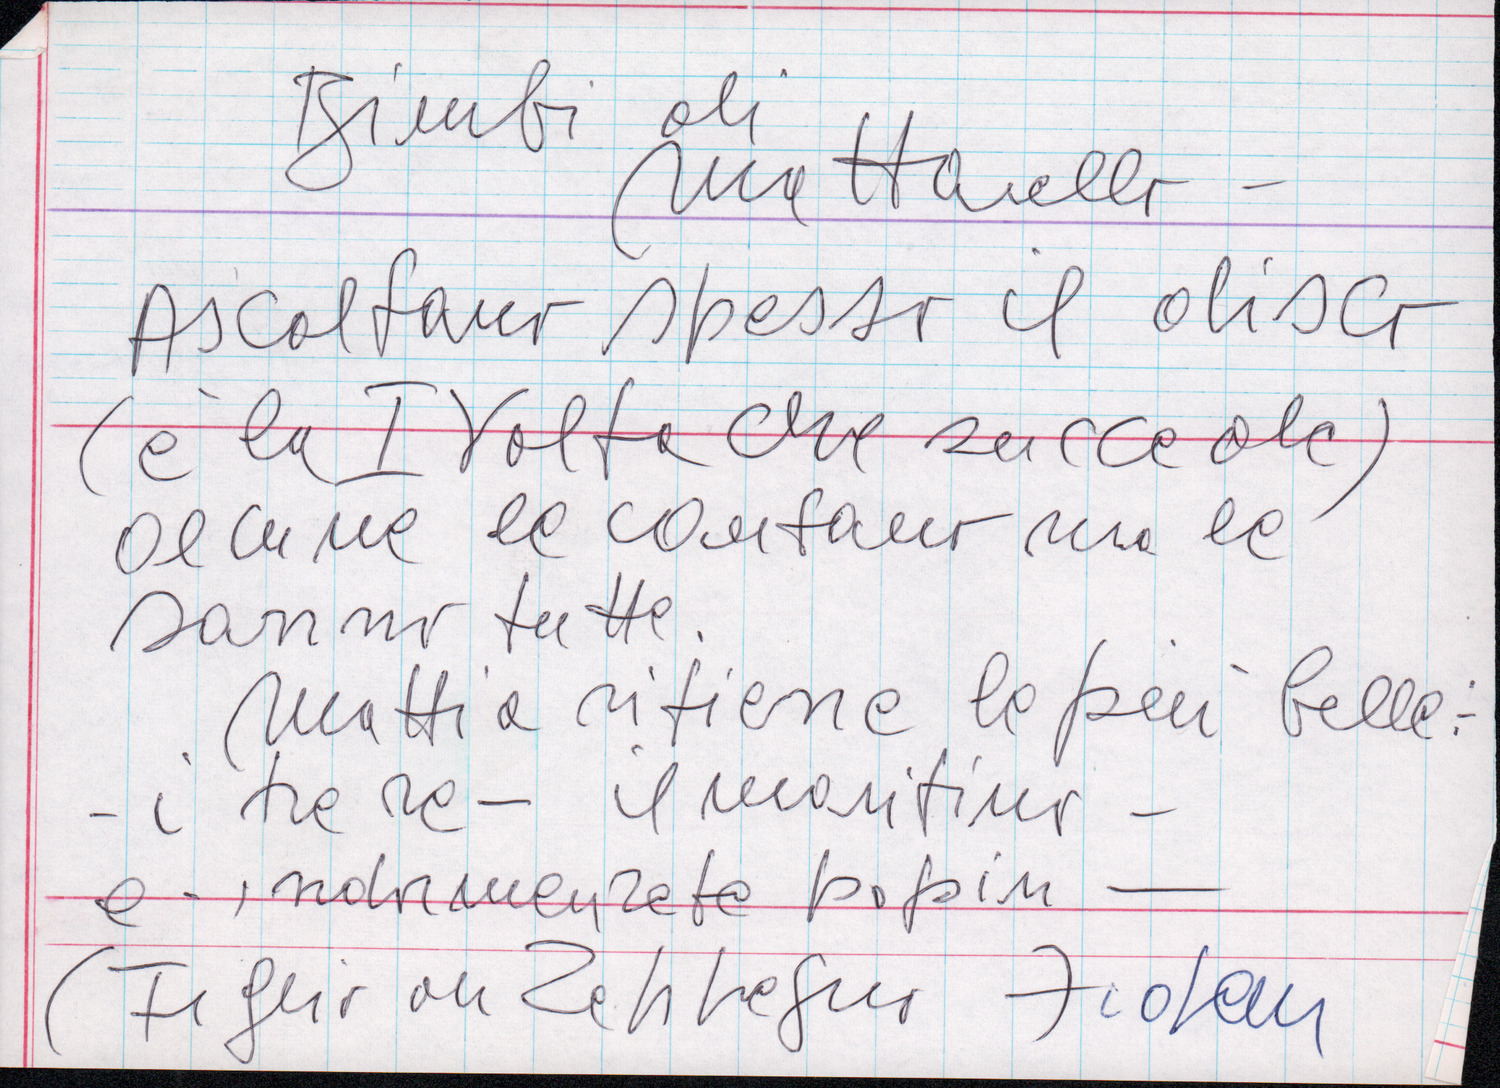 Bimbi di
Mattarello -
Ascoltano spesso il disco
(è la I Volta che succede)
alcune le cantano ma le
sanno tutte.
Mattia ritiene le più belle:
- i tre re - il mattino -
e - indormenzete popin —
(Figlio di